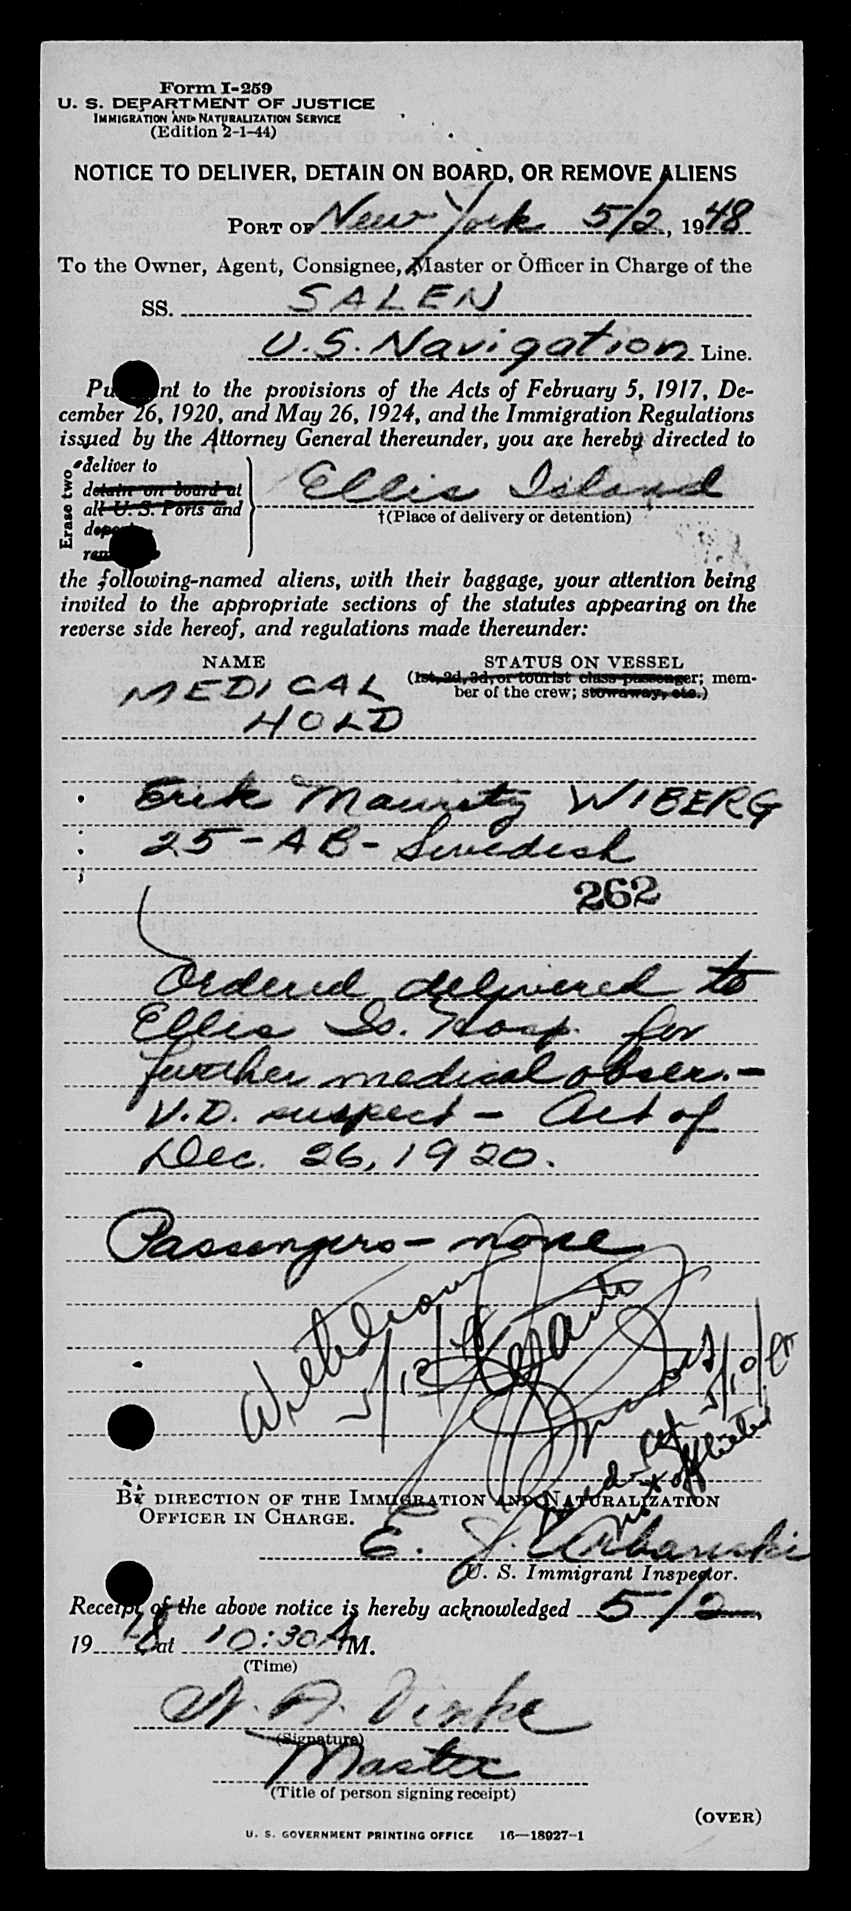 Form I-259
U. S. DEPARTMENT OF JUSTICE
IMMIGRATION AND NATURALIZATION SERVICE
(Edition 2-1-44)
NOTICE TO DELIVER, DETAIN ON BOARD, OR REMOVE ALIENS
PORT OF New York 5/2, 1948
To the Owner, Agent, Consignee, Master or Officer in Charge of the
SS. SALEN
U.S. Navigation Line.
Pu nt to the provisions of the Acts of February 5, 1917, De-
cember 26, 1920, and May 26, 1924, and the Immigration Regulations
issued by the Attorney General thereunder, you are hereby directed to
Erase two
deliver to
detain on board at
all U. S. Ports and
Ellis Island
†(Place of delivery or detention)
the following-named aliens, with their baggage, your attention being
invited to the appropriate sections of the statutes appearing on the
reverse side hereof, and regulations made thereunder:
NAME STATUS ON VESSEL
(1st, 2d, 3d, or tourist class passenger; mem-
ber of the crew; stowaway, etc.)
MEDICAL
HOLD
Erik Mauritz WIBERG
25-AB-Swedish
262
Ordered delivered to
Ellis Is. Hosp. for
further medical obser.-
V.D. suspect - Act of
Dec. 26, 1920.
Passengers - none
Withdrawn
5/10/48
5/10/48
not afflicted
BY DIRECTION OF THE IMMIGRATION AND NATURALIZATION
OFFICER IN CHARGE.
E. J. Urbanski
U. S. Immigrant Inspector.
Receipt of the above notice is hereby acknowledged 5/2
1948 at 10:30 AM.
(Time)
(Signature)
Master
(Title of person signing receipt)
(OVER)
U. S. GOVERNMENT PRINTING OFFICE 16—18927-1